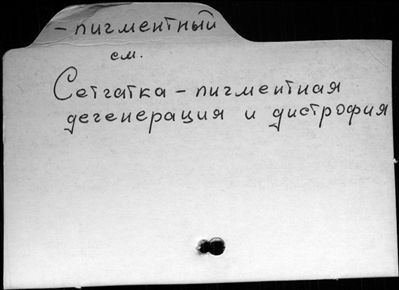 - пигментный
см.
Сетчатка - пигментная
дегенерация и дистрофия